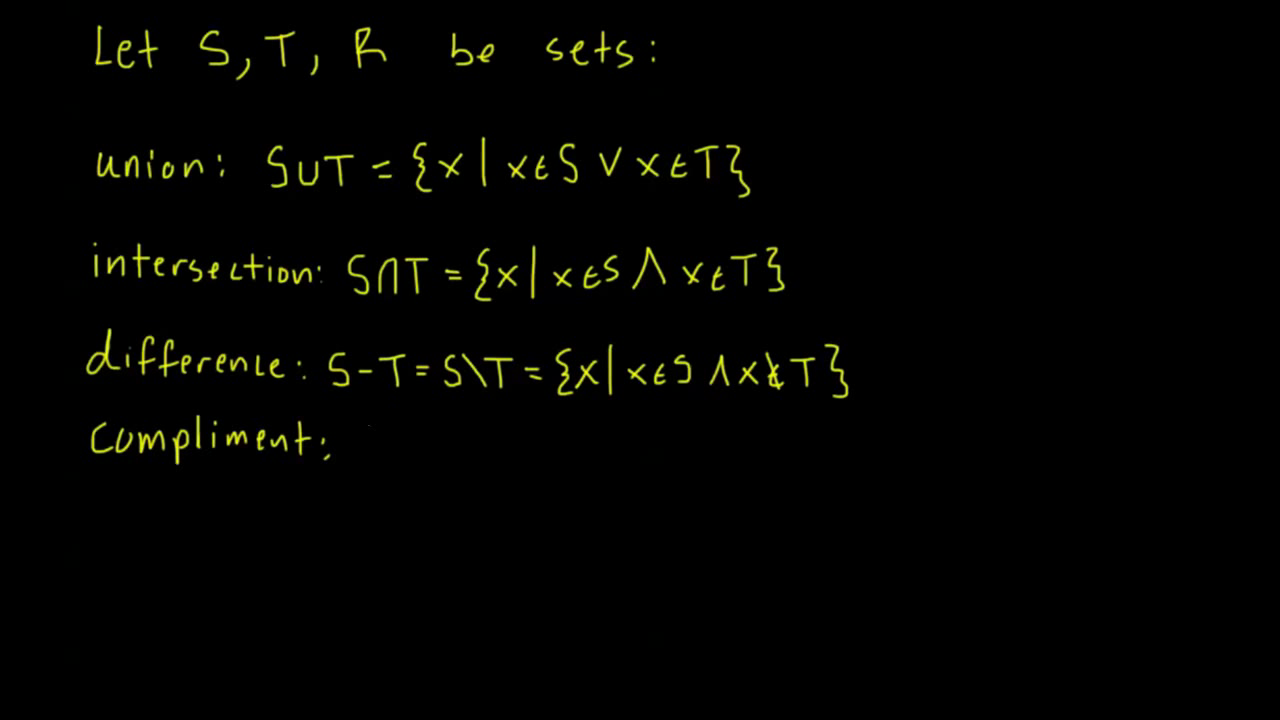 Let S, T, R be sets:
union: S∪T = {x | x∈S ∨ x∈T}
intersection: S∩T = {x | x∈S ∧ x∈T}
difference: S-T = S\T = {x | x∈S ∧ x∉T}
compliment: